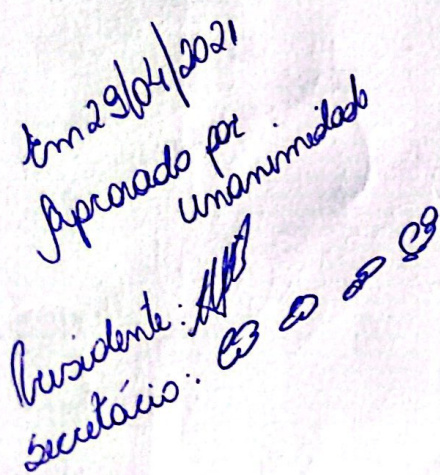 Em 29/04/2021
Aprovado por
unanimidade
Presidente:
Secretário: